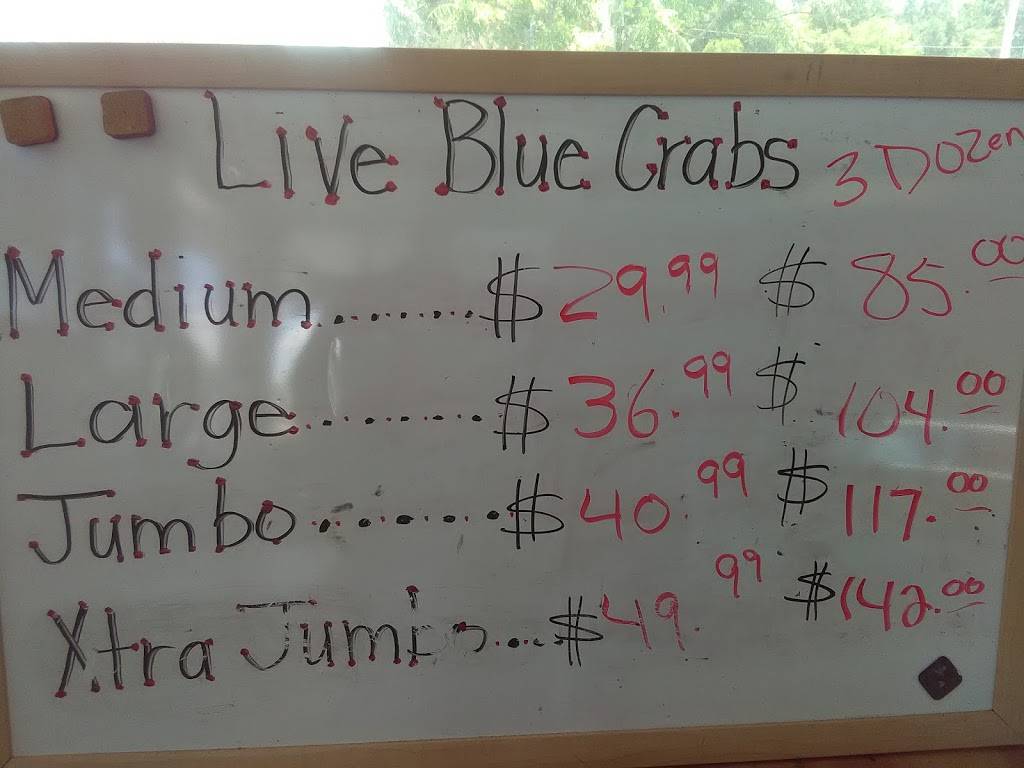 Live Blue Crabs 3 Dozen
Medium.......... $ 29.99 $ 85.00
Large.......... $ 36.99 $ 104.00
Jumbo......... $ 40.99 $ 117.00
Xtra Jumbo.... $ 49.99 $ 142.00